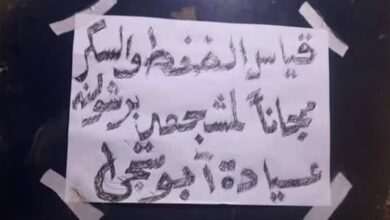 قياس الضغط والسكر
مجاناً لمشجعين برشلونه
عيادة أبو شجى